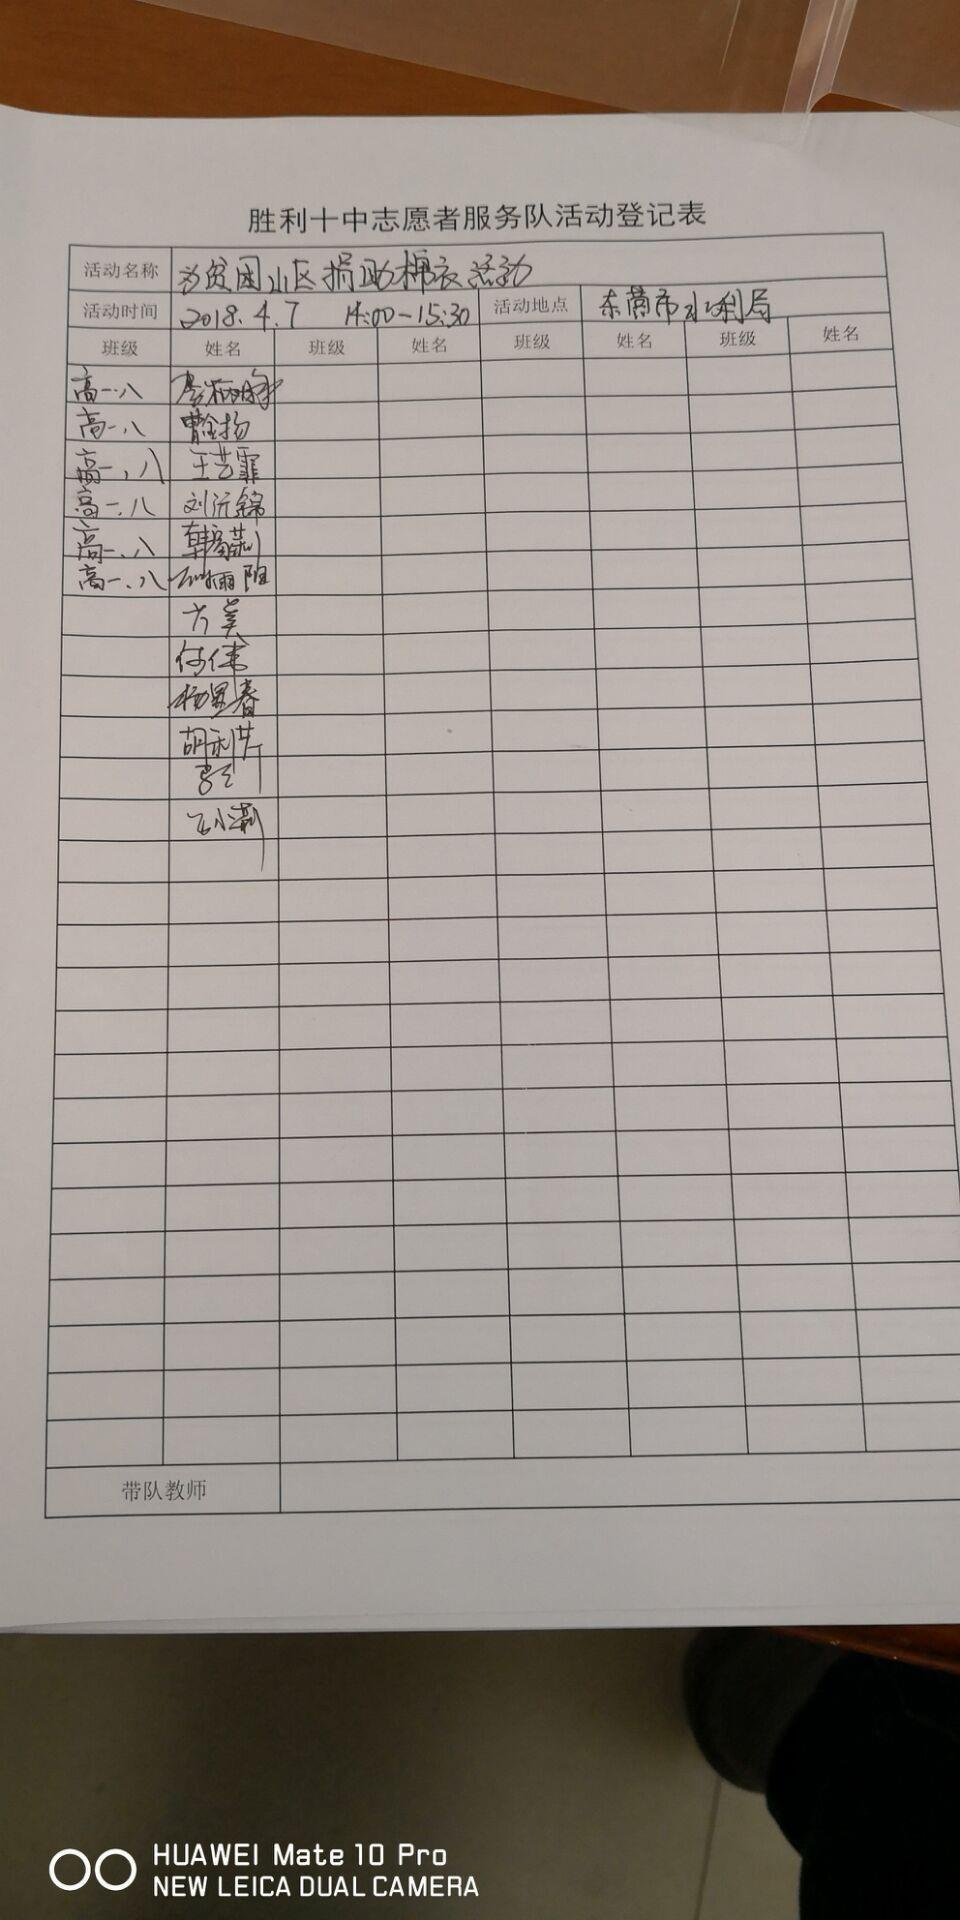 胜利十中志愿者服务队活动登记表
活动名称 为贫困山区捐助棉衣活动
活动时间 2018.4.7 14:00-15:30 活动地点 东营市水利局
班级 姓名 班级 姓名 班级 姓名 班级 姓名
高一.八
高一.八 曹金扬
高一.八 王艺霏
高一.八 刘沂锦
高一.八 韩
高一.八
方美
何伟
杨显春
胡利芹
王小莉
带队教师
HUAWEI Mate 10 Pro
NEW LEICA DUAL CAMERA